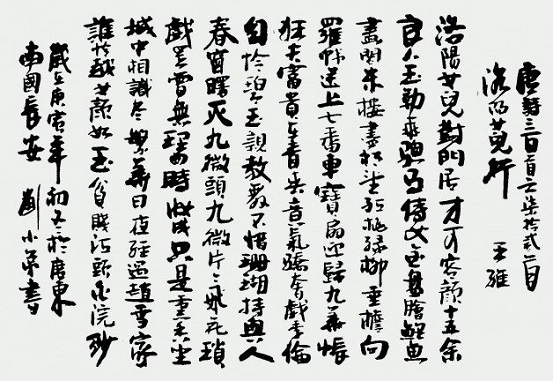 唐詩三百首之柒拾貳首
洛陽女兒行 王維
洛陽女兒對門居才可容顏十五余
良人玉勒乘驄馬侍女金盤膾鯉魚
畫閣朱樓盡相望紅桃綠柳垂檐向
羅帷送上七香車寶扇迎歸九華帳
狂夫富貴在青春意氣驕奢劇季倫
自憐碧玉親教舞不惜珊瑚持與人
春窗曙灭九微火九微片片飛花瑣
戲罷曾無理曲時妝成只是熏香坐
城中相識盡繁華日夜經過趙李家
誰憐越女顏如玉貧賤江頭自浣紗
歲在庚寅年初夏於廣東
南國長安 劉小書